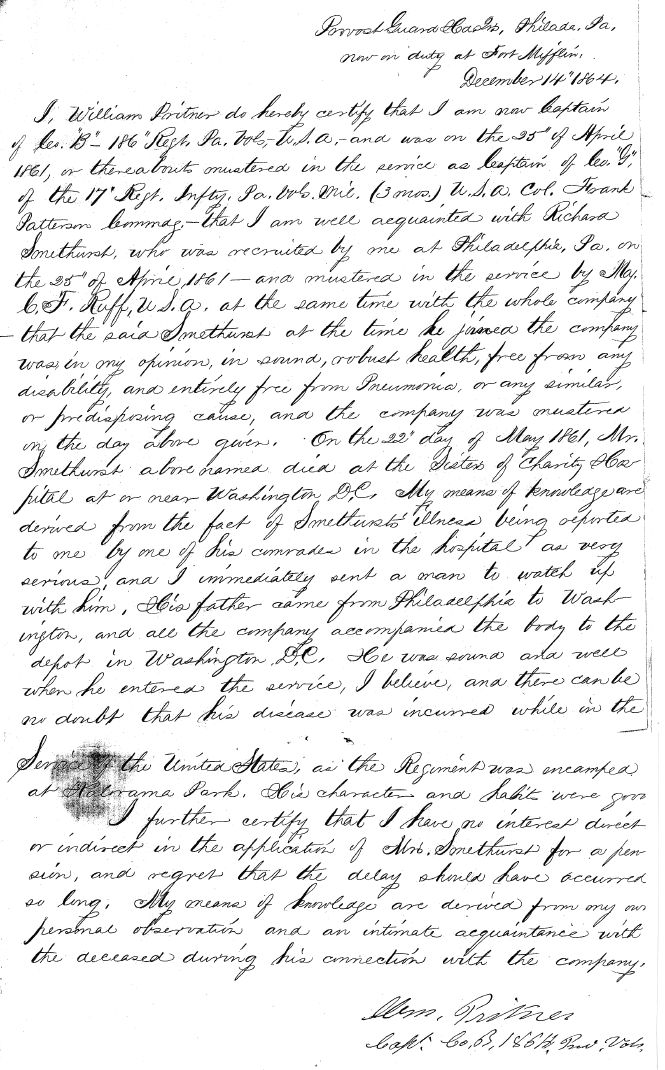 Provost Guard Hdqrs, Philada, Pa.
now on duty at Fort Mifflin,
December 14" 1864.
I, William Pritner do hereby certify that I am now Captain
of Co. "B" - 186" Regt. Pa. Vols, - U.S.A, - and was on the 25" of April
1861, or thereabouts mustered in the service as Captain of Co. "G",
of the 17" Regt. Infty, Pa. Vols. Mil. (3 mos.) U.S.A. Col. Frank
Patterson Commdg, - that I am well acquainted with Richard
Smethurst, who was recruited by me at Philadelphia, Pa. on
the 25" of April, 1861 - and mustered in the service by Maj.
C. F. Ruff, U.S.A. at the same time with the whole company
that the said Smethurst at the time he joined the company
was in my opinion, in sound, robust health, free from any
disability, and entirely free from Pneumonia, or any similar,
or predisposing cause, and the company was mustered
on the day above given. On the 22" day of May 1861, Mr.
Smethurst above named died at the Sisters of Charity Hos
pital at or near Washington D.C. My means of knowledge are
derived from the fact of Smethursts' illness being reported
to me by one of his comrades in the hospital as very
serious, and I immediately sent a man to watch up
with him. His father came from Philadelphia to Wash-
ington, and all the company accompanied the body to the
depot in Washington D.C. He was sound and well
when he entered the service, I believe, and there can be
no doubt that his disease was incurred while in the
Service of the United States, as the Regiment was encamped
at Kalorama Park. His character and habits were good
I further certify that I have no interest direct
or indirect in the application of Mrs. Smethurst for a pen
sion, and regret that the delay should have occurred
so long. My means of knowledge are derived from my own
personal observation and an intimate acquaintance with
the deceased during his connection with the company.
Wm. Pritner
Capt. Co. B, 186th Vols.